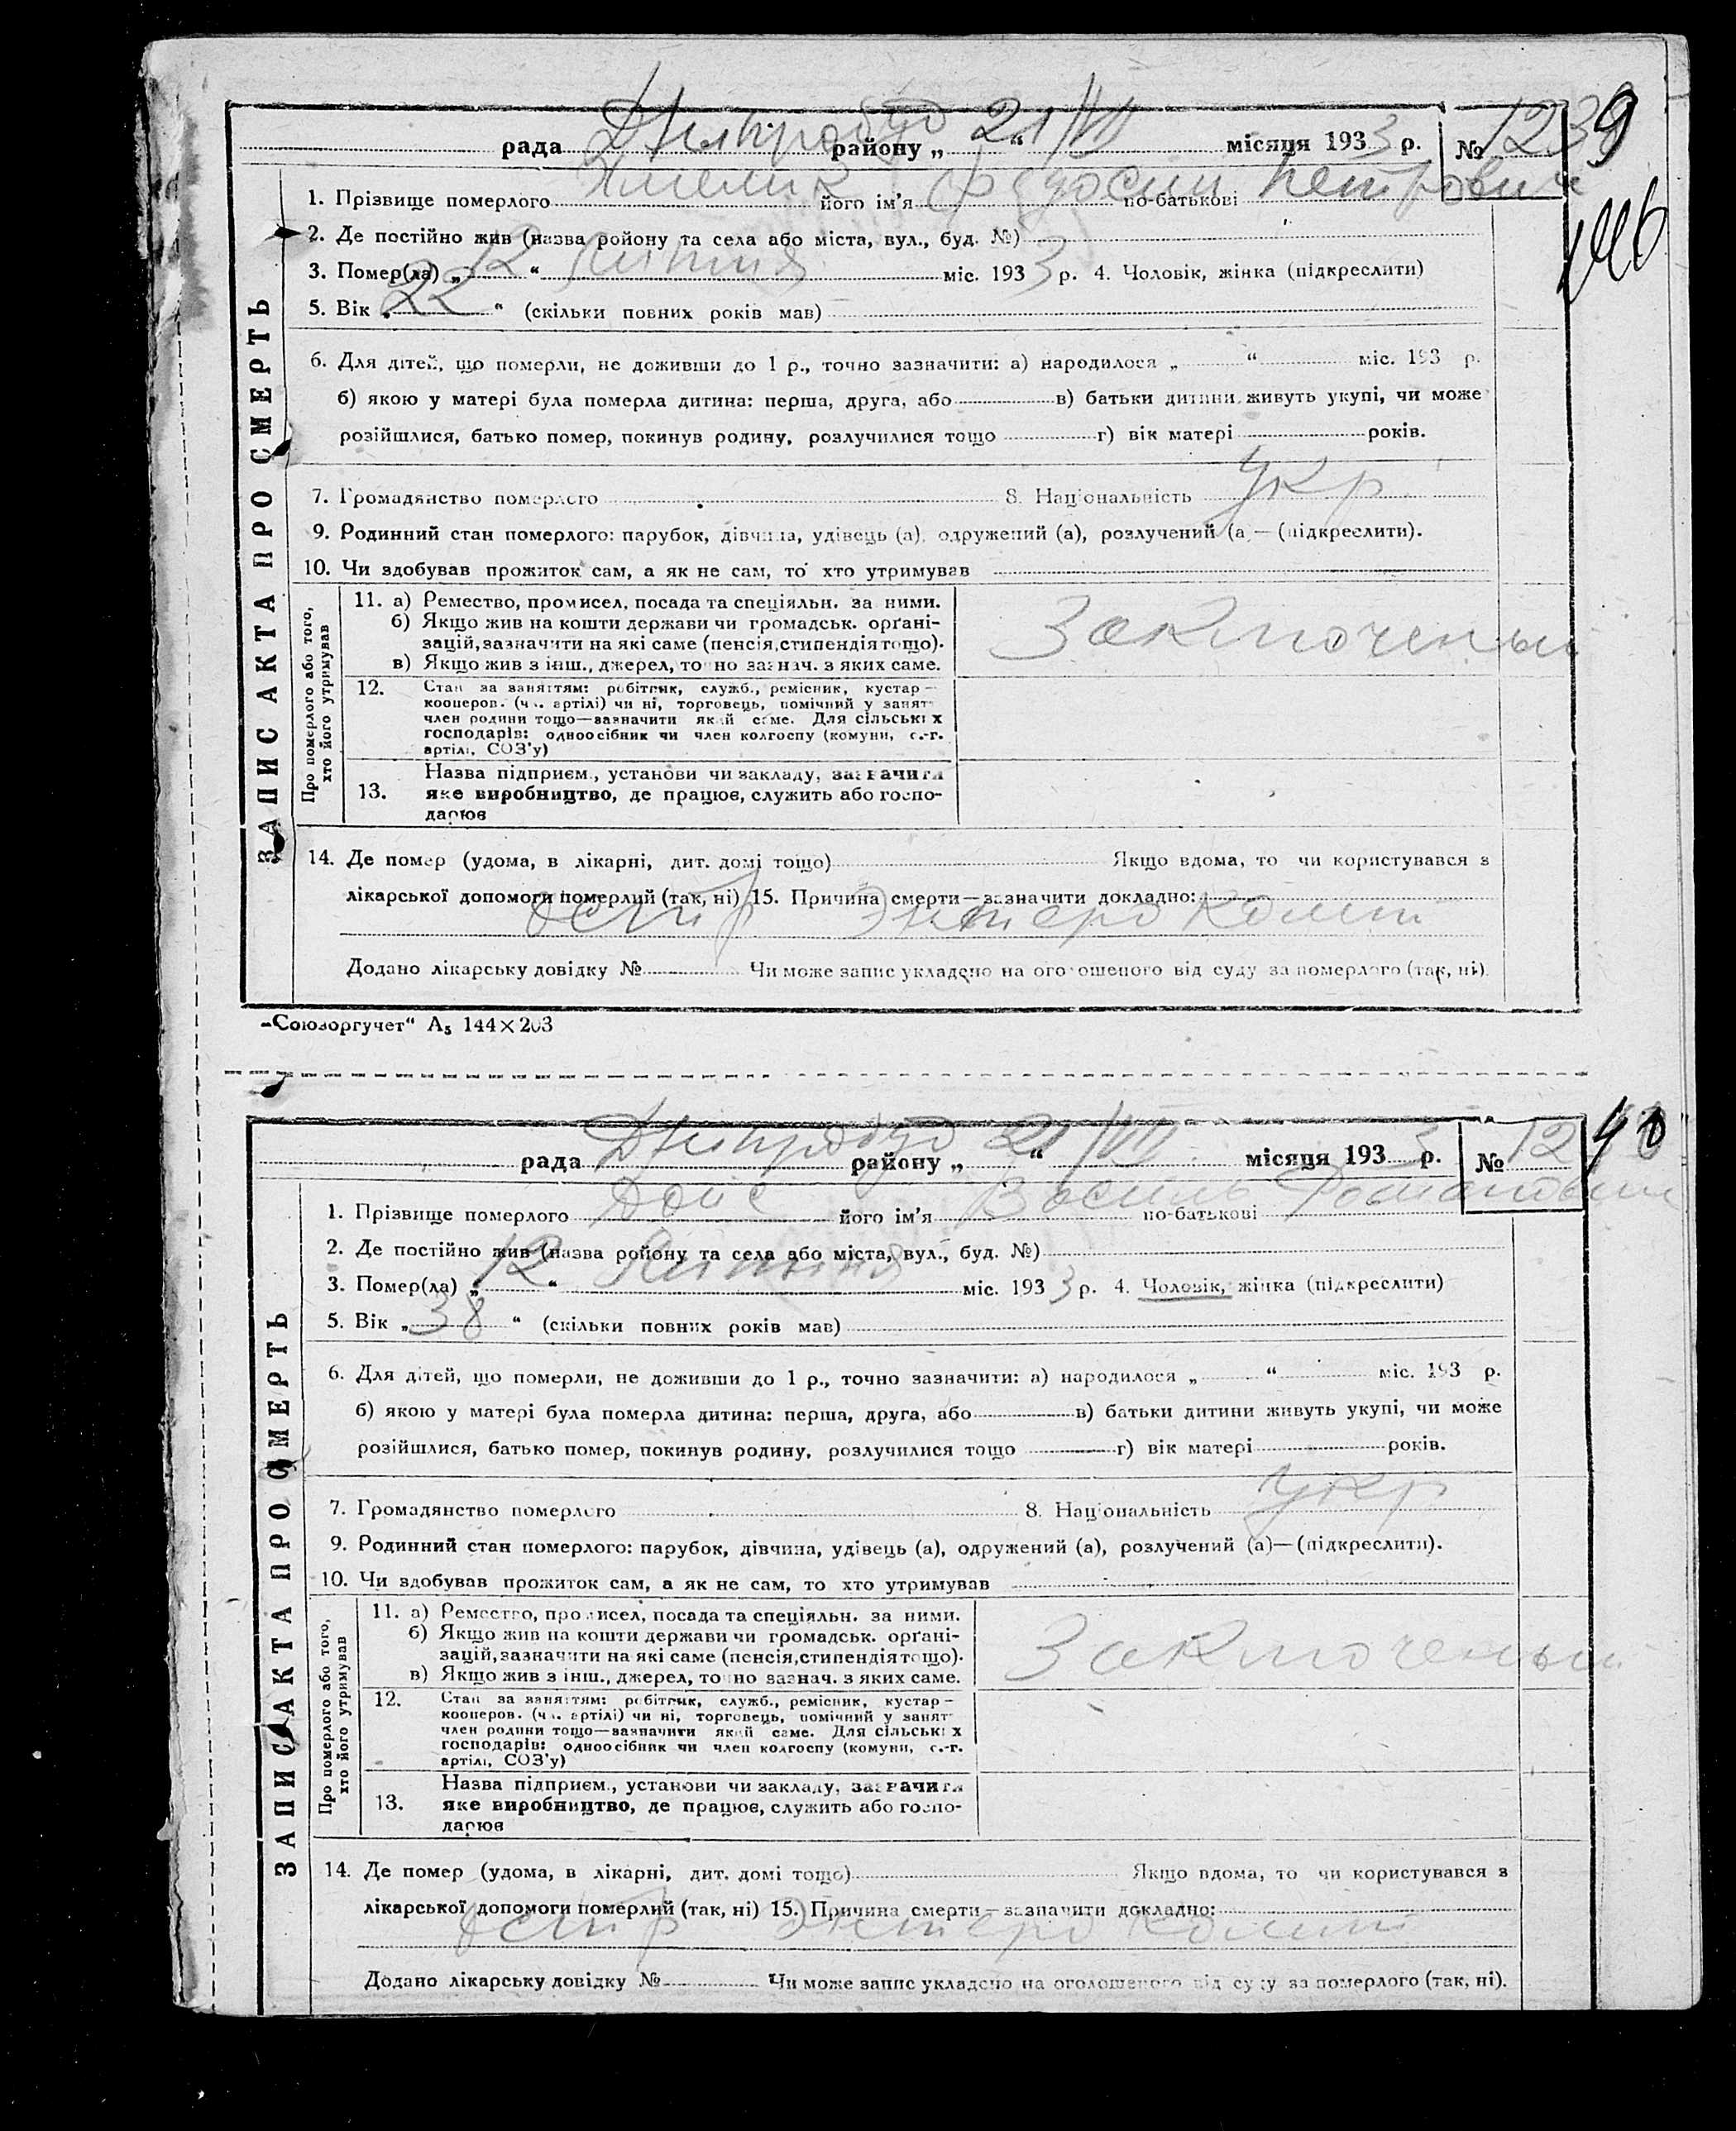 Дніпробуд 21/VII 9
рада районy „ “ місяця 1933 р. № 1239
Хмелик Федосии Петрович
1. Прізвище померлого його ім’я по-батькові
2. Де постійно жив (назва ройону та села або міста, вул., буд. №)
3. Помер(ла) „12“ Липння міс. 1933 р. 4. Чоловік, жінка (підкреслити)
5. Вік „22“ (скільки повних років мав)
6. Для дітей, що померли, не доживши до 1 р., точно зазначити: а) народилося „ “ міс. 193 р.
б) якою у матері була померла дитина: перша, друга, або в) батьки дитини живуть укупі, чи може
розійшлися, батько помер, покинув родину, розлучилися тощо г) вік матері років.
7. Громадянство померлого 8. Національність Укр
9. Родинний стан померлого: парубок, дівчина, удівець (а), одружений (а), розлучений (а — (підкреслити).
10. Чи здобував прожиток сам, а як не сам, то хто утримував
ЗАПИС АКТА ПРО СМЕРТЬ
Про померлого або того,
хто його утримував
11. а) Ремество, промисел, посада та спеціяльн. за ними.
б) Якщо жив на кошти держави чи громадськ. орґані-
зацій, зазначити на які саме (пенсія, стипендія тощо).
в) Якщо жив з інш., джерел, точно зазнач. з яких саме.
Заключеный
12. Стан за заняттям: робітник, служб., ремісник, кустар —
кооперов. (чл. артілі) чи ні, торговець, помічний у занят
член родини тощо—зазначити який саме. Для сільських
господарів: одноосібник чи член колгоспу (комуни, с.-г.
артілі, СОЗ’у)
Назва підприєм., установи чи закладу, зазначити
13. яке виробництво, де працює, служить або госпо-
дарює
14. Де помер (удома, в лікарні, дит. домі тощо) Якщо вдома, то чи користувався з
лікарської допомоги померлий (так, ні) 15. Причина смерти—зазначити докладно:
остр Энтероколит
Додано лікарську довідку № Чи може запис укладено на оголошеного від суду за померлого (так, ні).
„Союзоргучет“ А5 144×203
Дніпробуд 21/VII 40
рада районy „ “ місяця 1933 р. № 12
Василь Романович
1. Прізвище померлого його ім’я по-батькові
2. Де постійно жив (назва ройону та села або міста, вул., буд. №)
3. Помер(ла) „12“ Липння міс. 1933 р. 4. Чоловік, жінка (підкреслити)
5. Вік „38“ (скільки повних років мав)
6. Для дітей, що померли, не доживши до 1 р., точно зазначити: а) народилося „ “ міс. 193 р.
б) якою у матері була померла дитина: перша, друга, або в) батьки дитини живуть укупі, чи може
розійшлися, батько помер, покинув родину, розлучилися тощо г) вік матері років.
7. Громадянство померлого 8. Національність Укр
9. Родинний стан померлого: парубок, дівчина, удівець (а), одружений (а), розлучений (а)—(підкреслити).
10. Чи здобував прожиток сам, а як не сам, то хто утримував
ЗАПИС АКТА ПРО СМЕРТЬ
Про померлого або того,
хто його утримував
11. а) Ремество, промисел, посада та спеціяльн. за ними.
б) Якщо жив на кошти держави чи громадськ. орґані-
зацій, зазначити на які саме (пенсія, стипендія тощо).
в) Якщо жив з інш., джерел, точно зазнач. з яких саме.
Заключеный
12. Стан за заняттям: робітник, служб., ремісник, кустар —
кооперов. (чл. артілі) чи ні, торговець, помічний у занят
член родини тощо—зазначити який саме. Для сільських
господарів: одноосібник чи член колгоспу (комуни, с.-г.
артілі, СОЗ’у)
Назва підприєм., установи чи закладу, зазначити
13. яке виробництво, де працює, служить або госпо-
дарює
14. Де помер (удома, в лікарні, дит. домі тощо) Якщо вдома, то чи користувався з
лікарської допомоги померлий (так, ні) 15. Причина смерти—зазначити докладно:
остр Энтероколит
Додано лікарську довідку № Чи може запис укладено на оголошеного від суду за померлого (так, ні).